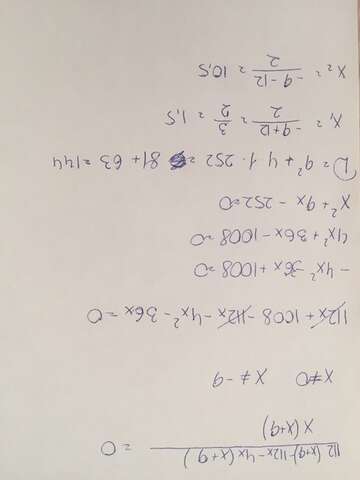 112(x+9)-112x-4x(x+9) / x(x+9) = 0
x≠0 x≠-9
112x + 1008 - 112x - 4x² - 36x = 0
-4x² - 36x + 1008 = 0
4x² + 36x - 1008 = 0
x² + 9x - 252 = 0
D = 9² + 4·1·252 = 81 + 63 = 144
x₁ = -9+12 / 2 = 3/2 = 1,5
x₂ = -9-12 / 2 = 10,5